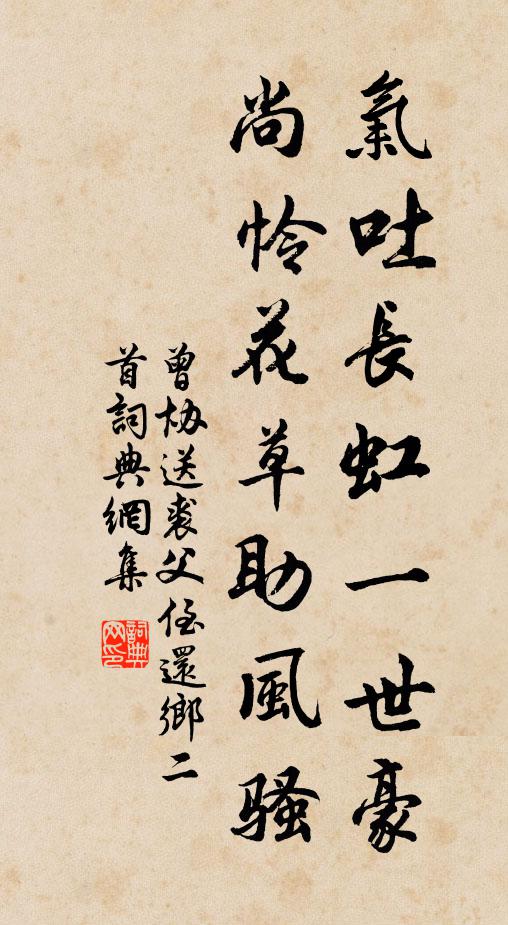 氣吐長虹一世豪
尚怜花草助風騷
曾协送裘父侄還鄉二
首詞典網集
詞典
网印